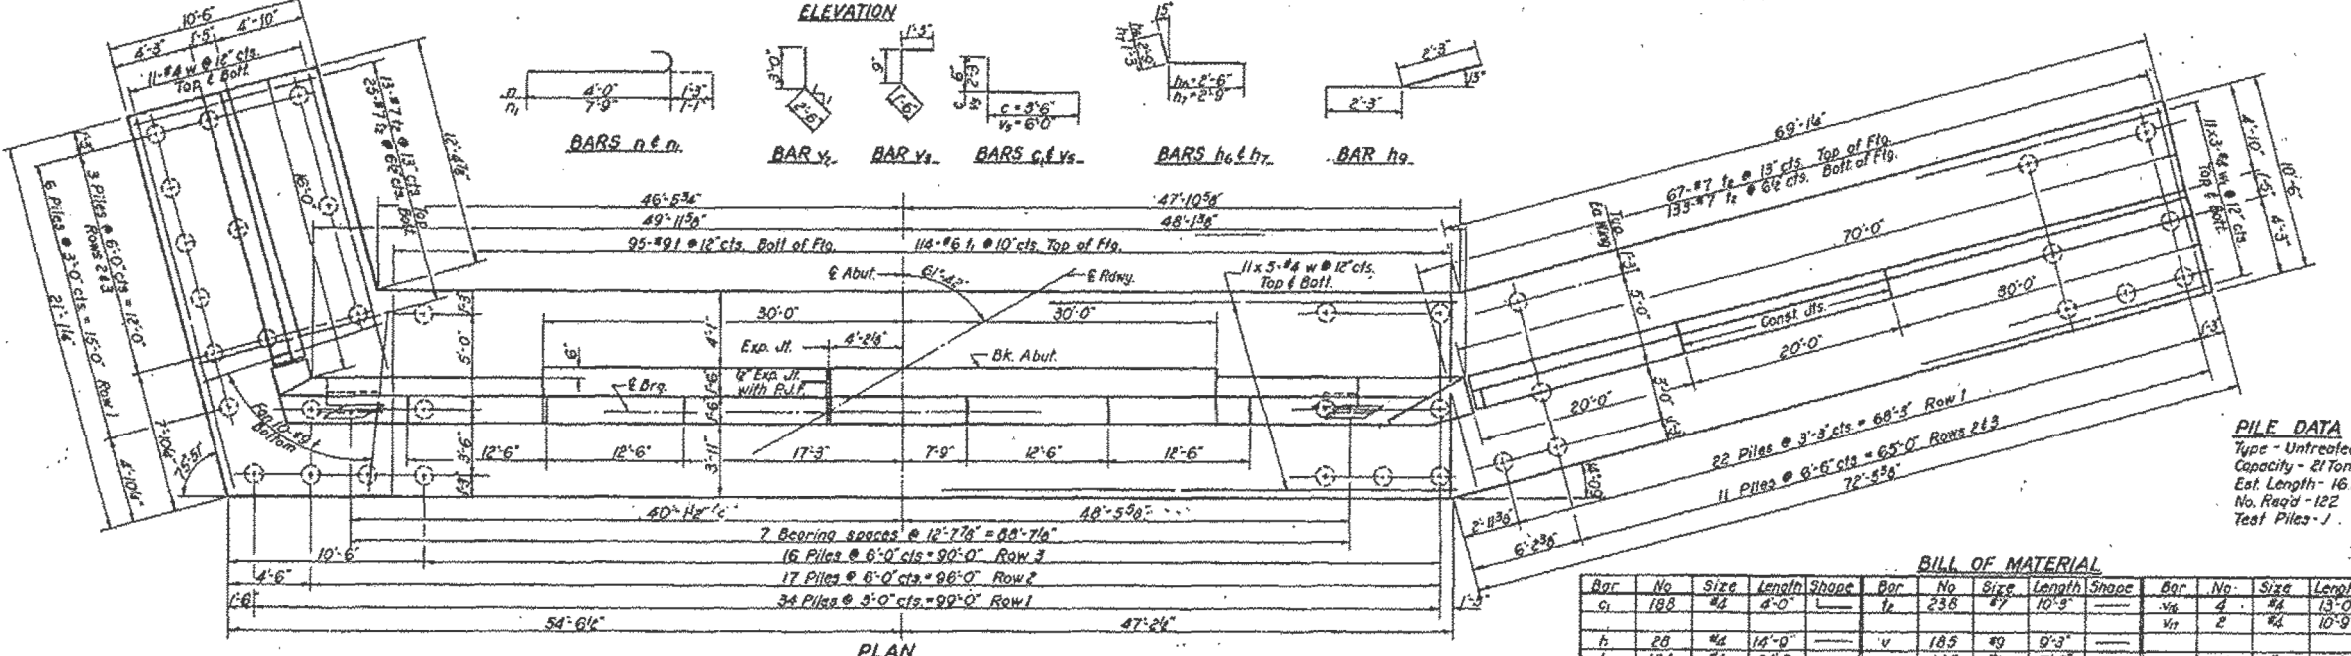 ELEVATION
10'-6"
4'-3" 1'-5" 4'-10"
11-#4 w @ 12" cts.
Top & Bott.
13-#7 t2 @ 13" cts. Top
25-#7 t2 @ 6½" cts. Bott.
12'-4⅞"
16'-0"
1'-3"
3 Piles @ 6'-0" cts = 12'-0"
Rows 2 & 3
6 Piles @ 3'-0" cts = 15'-0" Row 1
21'-1¼"
4'-10¼"
75°-51'
Fan 10-#9 t
Bottom
n 4'-0" 1'-3"
n1 7'-9" 1'-1"
BARS n & n1
2'-6"
BAR v2
1'-3"
1'-6"
BAR v3
c = 3'-6"
v5 = 6'-0"
BARS c1 & v5
15°
h6 = 2'-6"
h7 = 2'-9"
BARS h6 & h7
2'-3"
15°
2'-3"
BAR h9
46'-5¾" 47'-10⅝"
49'-11⅝" 48'-1⅜"
95-#9 t @ 12" cts. Bott of Ftg. 114-#6 t1 @ 10" cts. Top of Ftg.
℄ Abut. ℄ Rdwy.
11 x 5-#4 w @ 12" cts.
Top & Bott.
30'-0" 30'-0"
1'-3"
5'-0"
4'-1"
Exp. Jt. 4'-2⅛"
6"
Bk. Abut.
℄ Brg.
½" Exp. Jt.
with P.J.F.
1'-6"
1'-6"
3'-6"
3'-11"
1'-3"
12'-6" 12'-6" 17'-3" 7'-9" 12'-6" 12'-6"
48'-5⅝"
7 Bearing spaces @ 12'-7⅞" = 88'-7⅛"
10'-6" 16 Piles @ 6'-0" cts = 90'-0" Row 3
4'-6" 17 Piles @ 6'-0" cts. = 96'-0" Row 2
1'-6" 34 Piles @ 3'-0" cts. = 99'-0" Row 1 1'-3"
54'-6½" 47'-2½"
PLAN
69'-1¼"
67-#7 t2 @ 13" cts. Top of Ftg.
133-#7 t2 @ 6½" cts. Bott. of Ftg.
Typ.
Ea Wing
1'-3"
5'-0"
3'-0"
1'-3"
70'-0"
Const. Jts.
20'-0" 20'-0" 30'-0"
11 x 3-#4 w @ 12" cts.
Top & Bott.
4'-10"
1'-5"
4'-3"
10'-6"
1'-3"
22 Piles @ 3'-3" cts = 68'-3" Row 1
11 Piles @ 6'-6" cts = 65'-0" Rows 2 & 3
72'-5⅜"
2'-11⅜"
6'-2⅜"
PILE DATA
Type - Untreated
Capacity - 21 Ton
Est. Length - 16
No. Req'd - 122
Test Piles - 1
BILL OF MATERIAL
Bar No Size Length Shape Bar No Size Length Shape Bar No. Size Length
c1 188 #4 4'-0" t2 238 #7 10'-3" v16 4 #4 13'-0
v17 2 #4 10'-9
h 28 #4 14'-9" v 185 #9 9'-3"